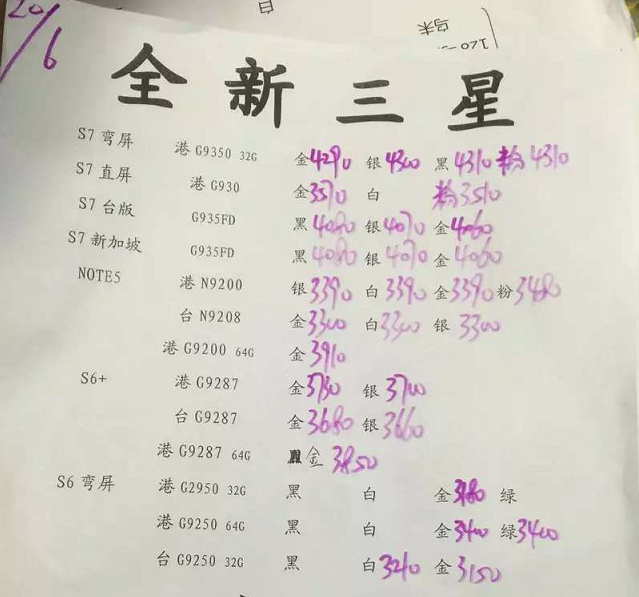 20/6
白
乌未
120
全新三星
S7 弯屏 港 G9350 32G 金4290 银4300 黑4310 粉4310
S7 直屏 港 G930 金3570 白 粉3510
S7 台版 G935FD 黑4080 银4070 金4060
S7 新加坡 G935FD 黑4080 银4070 金4060
NOTE5 港 N9200 银3390 白3390 金3390 粉3480
台 N9208 金3300 白3300 银3300
港 G9200 64G 金3910
S6+ 港 G9287 金3780 银3700
台 G9287 金3680 银3660
港 G9287 64G 金 3850
S6 弯屏 港 G2950 32G 黑 白 金3180 绿
港 G9250 64G 黑 白 金3400 绿3400
台 G9250 32G 黑 白3210 金3150